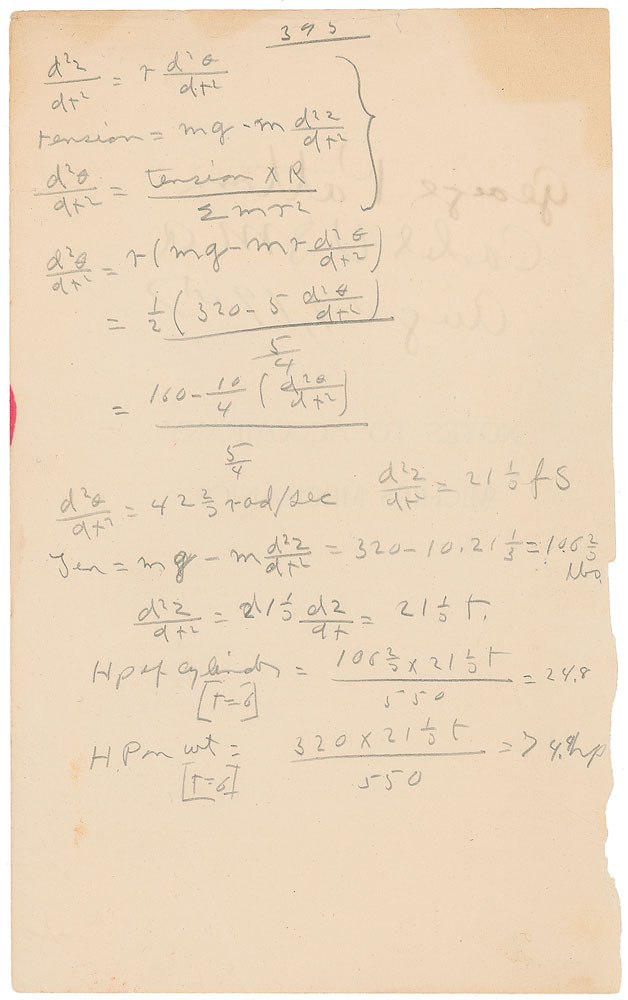 395
d²z/dt² = r d²θ/dt²
tension = mg - m d²z/dt²
d²θ/dt² = tension × R / Σmr²
d²θ/dt² = r(mg - mr d²θ/dt²)
= ½(320 - 5 d²θ/dt²) / 5/4
= 160 - 10/4 (d²θ/dt²) / 5/4
d²θ/dt² = 42 ⅔ rad/sec d²z/dt² = 21 ⅓ fs
Ten = mg - m d²z/dt² = 320 - 10.21 ⅓ = 106 ⅔ lbs.
d²z/dt² = 21 ⅓ dz/dt = 21 ⅓ t.
Hp of cylinder = 106 ⅔ × 21 ⅓ t / 550 = 24.8
[t=6]
H.P on wt = 320 × 21 ⅓ t / 550 = 74.4 hp
[t=6]